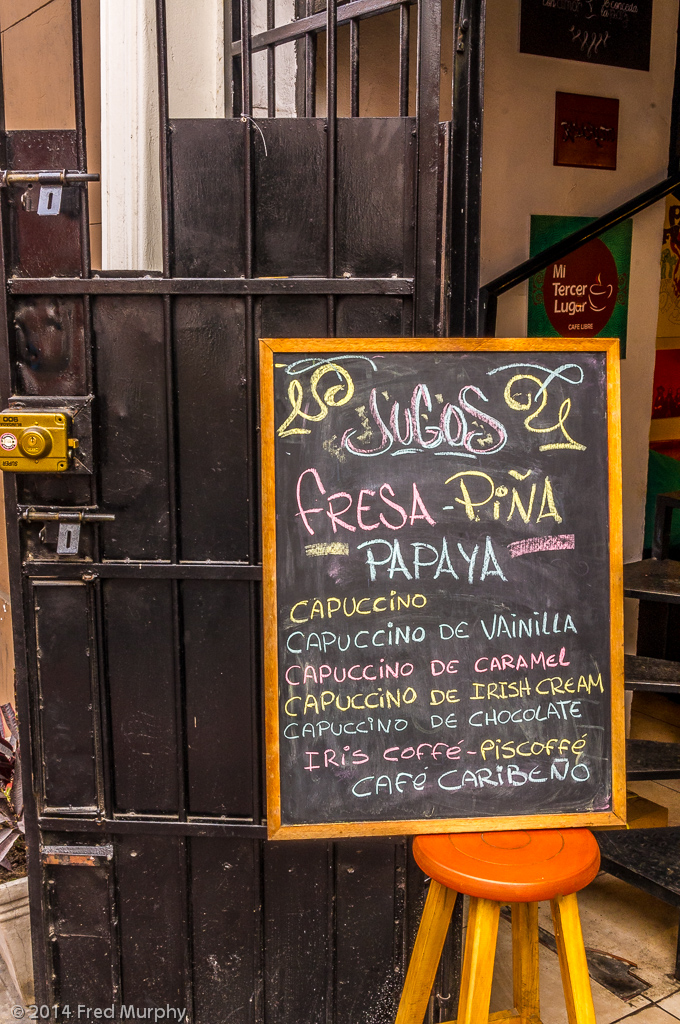 la
Mi
Tercer
Lugar
CAFE LIBRE
JUGOS
FRESA - PIÑA
PAPAYA
CAPUCCINO
CAPUCCINO DE VAINILLA
CAPUCCINO DE CARAMEL
CAPUCCINO DE IRISH CREAM
CAPUCCINO DE CHOCOLATE
IRIS COFFÉ - PISCOFFÉ
CAFÉ CARIBEÑO
© 2014 Fred Murphy